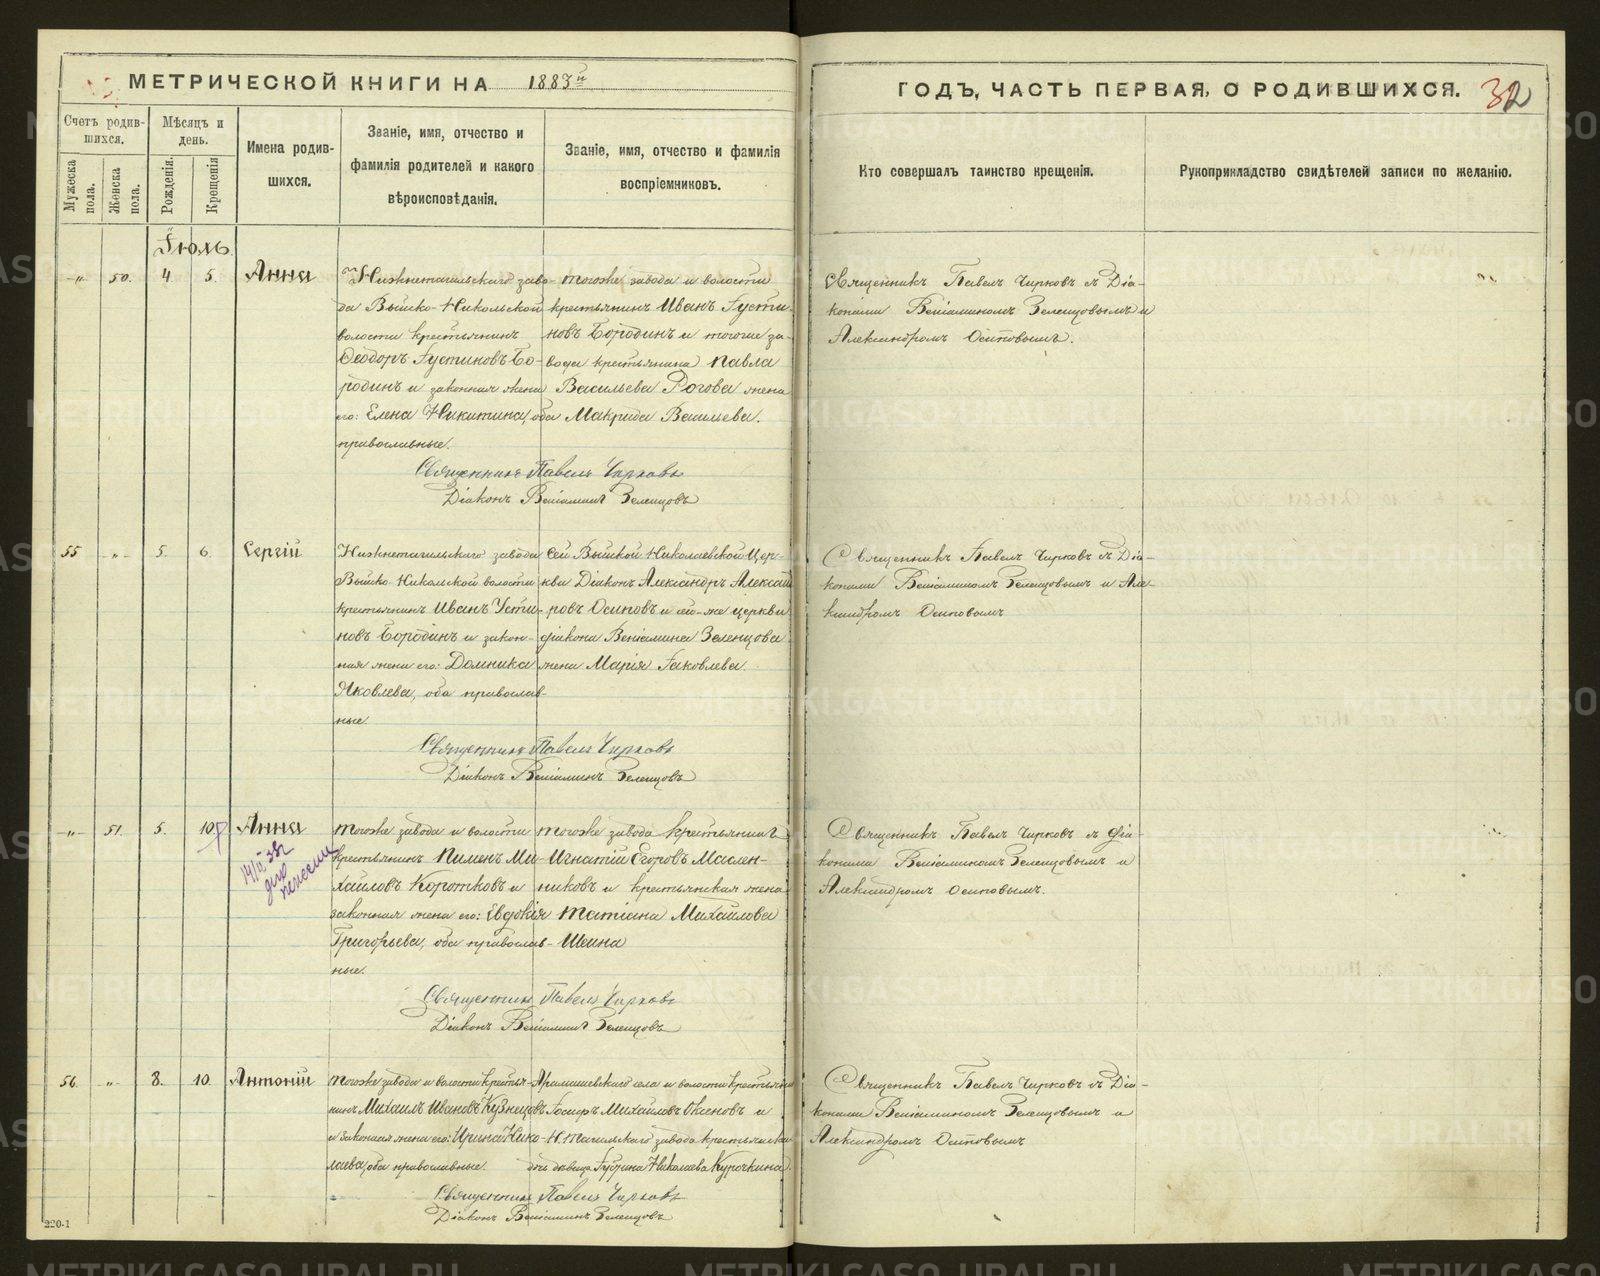 МЕТРИЧЕСКОЙ КНИГИ НА 1883й
ГОДЪ, ЧАСТЬ ПЕРВАЯ, О РОДИВШИХСЯ. 32
Счетъ родив-
шихся.
Мужеска пола.
Женска пола.
Мѣсяцъ и
день.
Рожденія.
Крещенія
Имена родив-
шихся.
Званіе, имя, отчество и
фамилія родителей и какого
вѣроисповѣданія.
Званіе, имя, отчество и фамилія
воспріемниковъ.
Кто совершалъ таинство крещенія.
Рукоприкладство свидѣтелей записи по желанію.
Іюль
-"- 50. 4 5. Анна
Нижнетагильскаго заво-
да Выйско-Никольской
волости крестьянинъ
Ѳеодоръ Іустиновъ Бо-
родинъ и законная жена
его: Елена Никитина, оба
православные.
тогоже завода и волости
крестьянинъ Иванъ Іусти-
новъ Бородинъ и тогоже за-
вода крестьянина Павла
Васильева Рогова жена
Макрида Васильева.
Священникъ Павелъ Чирковъ
Діаконъ Веніаминъ Зеленцовъ
Священникъ Павелъ Чирковъ съ Діа-
конами Веніаминомъ Зеленцовымъ и
Александромъ Осиповымъ.
55 -"- 5. 6. Сергій
Нижнетагильскаго завода
Выйско-Никольской волости
крестьянинъ Иванъ Усти-
новъ Бородинъ и закон-
ная жена его: Домника
Яковлева, оба православ-
ные.
Сей Выйской Николаевской Цер-
кви Діаконъ Александръ Алексан
ровъ Осиповъ и сей-же церкви
діакона Веніамина Зеленцова
жена Марія Іаковлева.
Священникъ Павелъ Чирковъ
Діаконъ Веніаминъ Зеленцовъ
Священникъ Павелъ Чирковъ съ Діа-
конами Веніаминомъ Зеленцовымъ и Але-
ксандромъ Осиповымъ
-"- 51. 5. 10. Анна
для
пенсии
тогоже завода и волости
крестьянинъ Пименъ Ми-
хайловъ Коротковъ и
законная жена его: Евдокія
Григорьева, оба православ-
ные.
тогоже завода крестьянинъ
Игнатій Егоровъ Маслен-
никовъ и крестьянская жена
Татіана Михайлова
Шеина
Священникъ Павелъ Чирковъ
Діаконъ Веніаминъ Зеленцовъ
Священникъ Павелъ Чирковъ съ Діа-
конами Веніаминомъ Зеленцовымъ и
Александромъ Осиповымъ.
56. -"- 8. 10. Антоній
тогоже завода и волости крестья-
нинъ Михаилъ Ивановъ Кузнецовъ
и законная жена его: Ирина Нико-
лаева, оба православные.
Арамашевскаго села и волости крестьянинъ
Іосифъ Михайловъ Оксеновъ и
Н. Тагильскаго завода крестьянска
дочь девица Іустина Николаева Курочкина.
Священникъ Павелъ Чирковъ
Діаконъ Веніаминъ Зеленцовъ
Священникъ Павелъ Чирковъ съ Діа-
конами Веніаминомъ Зеленцовымъ и
Александромъ Осиповымъ
220-1
METRIKI.GASO-URAL.RU